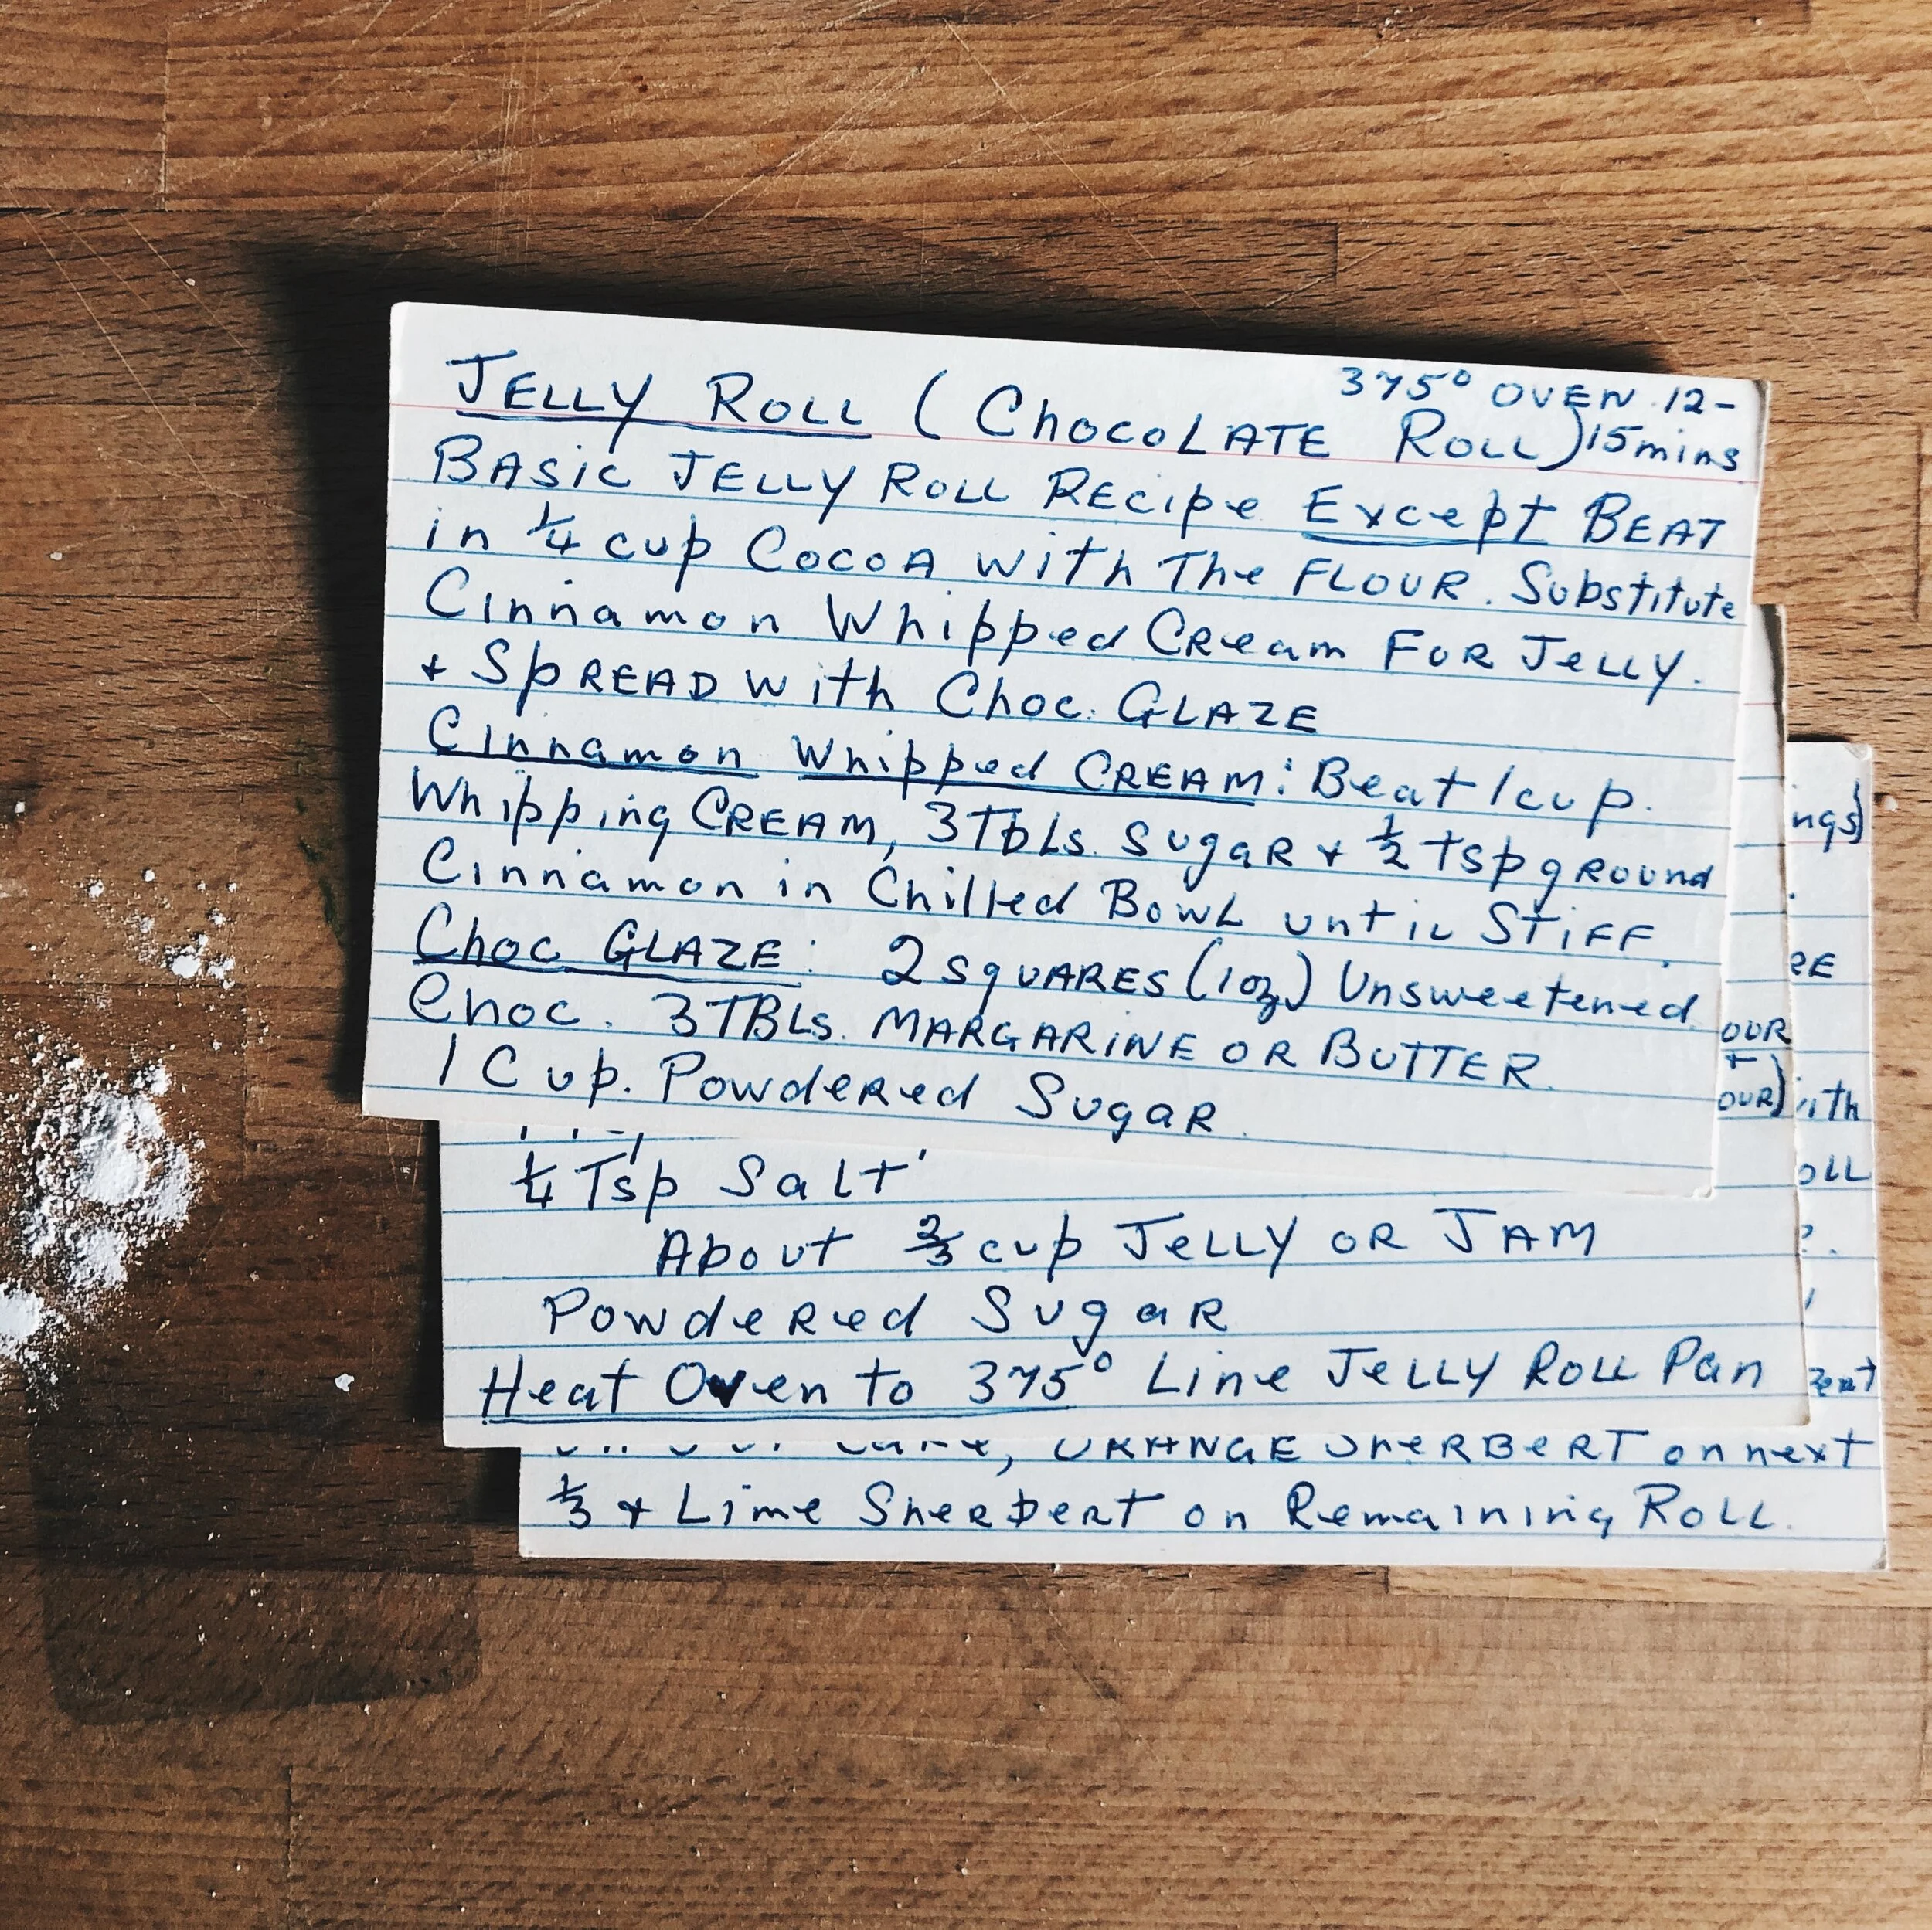 375° OVEN 12-
JELLY ROLL (CHOCOLATE ROLL) 15 mins
BASIC JELLY ROLL RECIPE EXCEPT BEAT
in 1/4 cup COCOA with The FLOUR. Substitute
Cinnamon Whipped CReam FOR JELLY.
+ SPREAD with Choc. GLAZE
Cinnamon Whipped CREAM: Beat 1 cup.
Whipping CREAM, 3 Tbls. SugaR + 1/2 tsp gROUND
Cinnamon in Chilled BOWL until STiFF.
Choc GLAZE: 2 SqUARES (1 oz) Unsweetened
Choc. 3 TBLs. MARGARINE OR BUTTER.
1 Cup. Powdered SugaR.
1/4 Tsp Salt
About 2/3 cup JELLY OR JAM
Powdered SugaR
Heat Oven to 375° Line JELLY ROLL Pan
OUR
+
OUR)
ngs)
RE
ith
OLL
?.
eat
, ORANGE SheRBERT on next
1/3 + Lime SheRbeRT on Remaining ROLL.